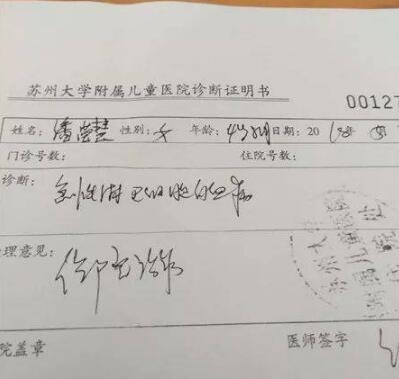 苏州大学附属儿童医院诊断证明书
00127
姓名: 潘莹慧 性别: 女 年龄: 4岁 日期: 20
门诊号数: 住院号数:
诊断: 急性淋巴细胞白血病
理意见:
院盖章 医师签字